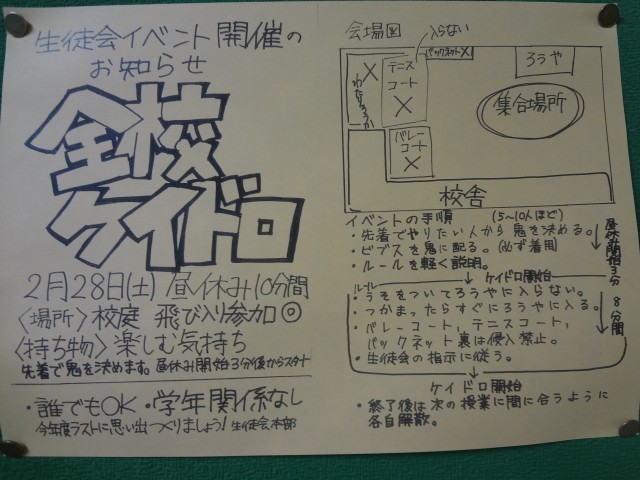 生徒会イベント開催の
お知らせ
全校
ケイドロ
2月28日(土) 昼休み10分間
〈場所〉校庭 飛び入り参加◎
〈持ち物〉楽しむ気持ち
先着で鬼を決めます。昼休み開始3分後からスタート
・誰でもOK ・学年関係なし
今年度ラストに思い出つくりましょう! 生徒会本部
会場図
入らない
バックネット×
ろうや
テニス
コート
×
×
わたりろうか
集合場所
バレー
コート
×
校舎
イベントの手順 (5〜10人ほど)
・先着でやりたい人から鬼を決める。
・ビブスを鬼に配る。(必ず着用)
・ルールを軽く説明。
昼休み開始3分
ケイドロ開始
ルール
・うそをついてろうやに入らない。
・つかまったらすぐにろうやに入る。
・バレーコート,テニスコート,
バックネット裏は侵入禁止。
・生徒会の指示に従う。
8分間
ケイドロ開始
・終了後は次の授業に間に合うように
各自解散。